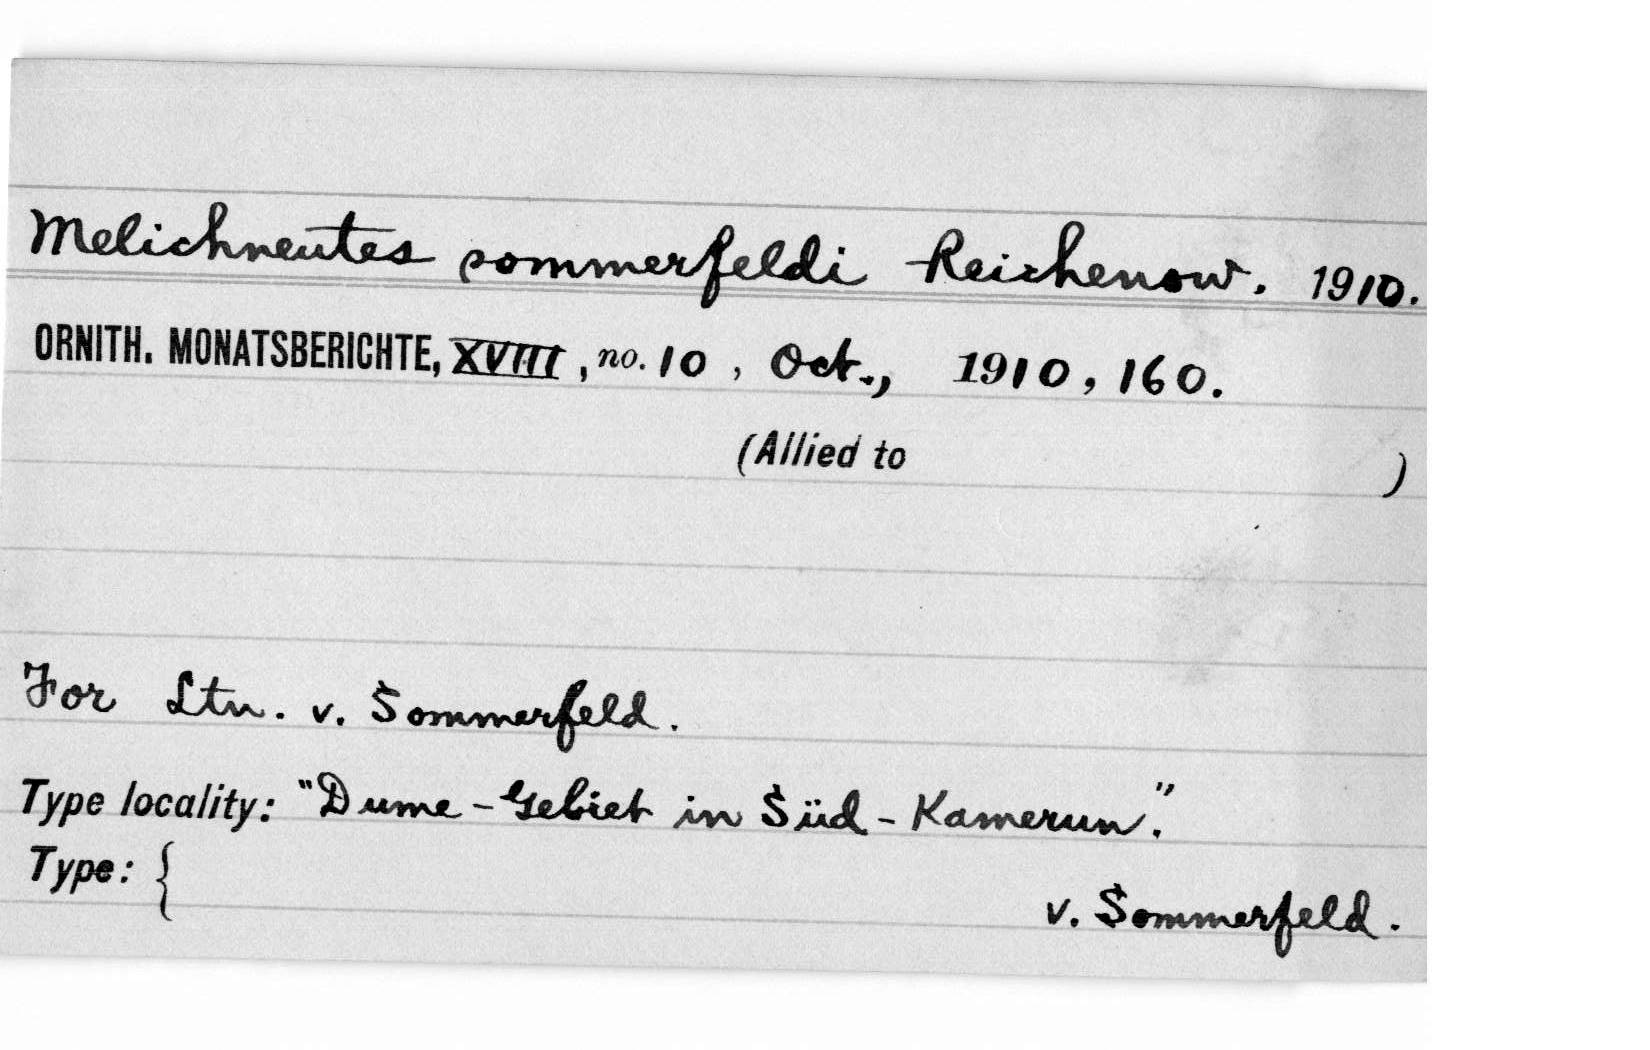 Melichneutes sommerfeldi Reichenow. 1910.
ORNITH. MONATSBERICHTE, XVIII, no. 10, Oct., 1910, 160.
(Allied to )
For Ltn. v. Sommerfeld.
Type locality: "Dume-Gebiet in Süd-Kamerun".
Type: {
v. Sommerfeld.